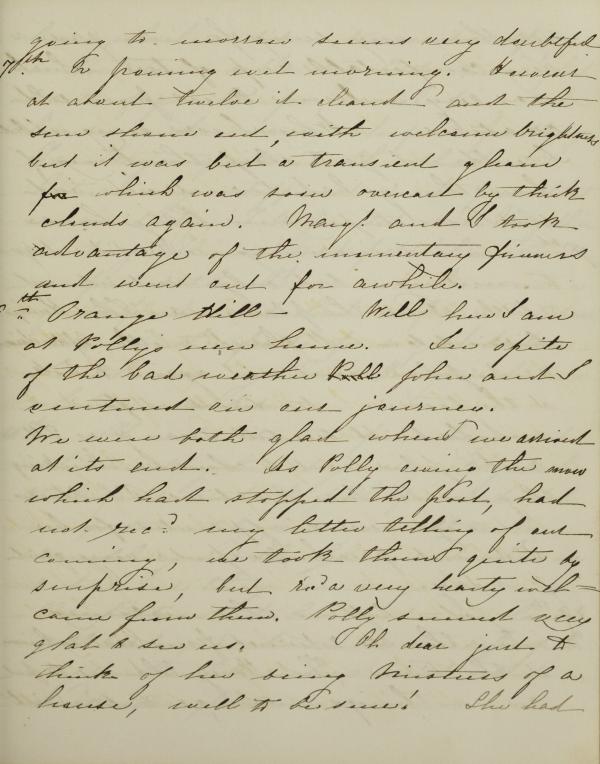 going to-morrow seems very doubtful
7th. A pouring wet morning. However
at about twelve it cleared and the
sun shone out, with welcome brightness
but it was but a transient gleam
for which was soon overcast by thick
clouds again. Margt. and I took
advantage of the momentary fineness
and went out for awhile.
th Orange Hill - Well here I am
at Polly's new home. In spite
of the bad weather Poll John and I
ventured on our journey.
We were both glad when we arrived
at its end. As Polly owing the snow
which had stopped the post, had
not recd. my letter telling of our
coming, we took them quite by
surprise, but rcd a very hearty wel=
come from them. Polly seemed very
glad to see us. Oh dear just to
think of her being Mistress of a
house, well to be sure! She had